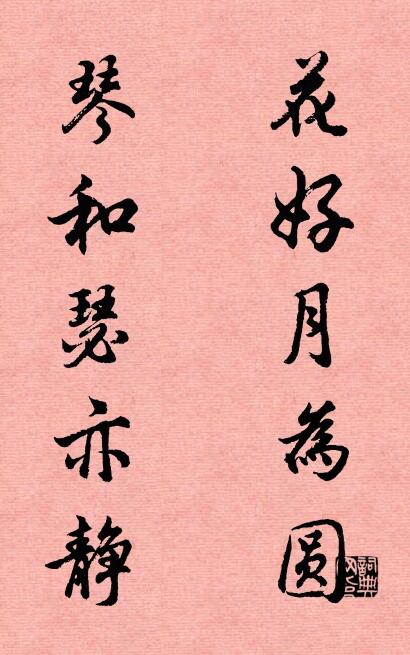 花好月為圆
琴和瑟亦静
詞典